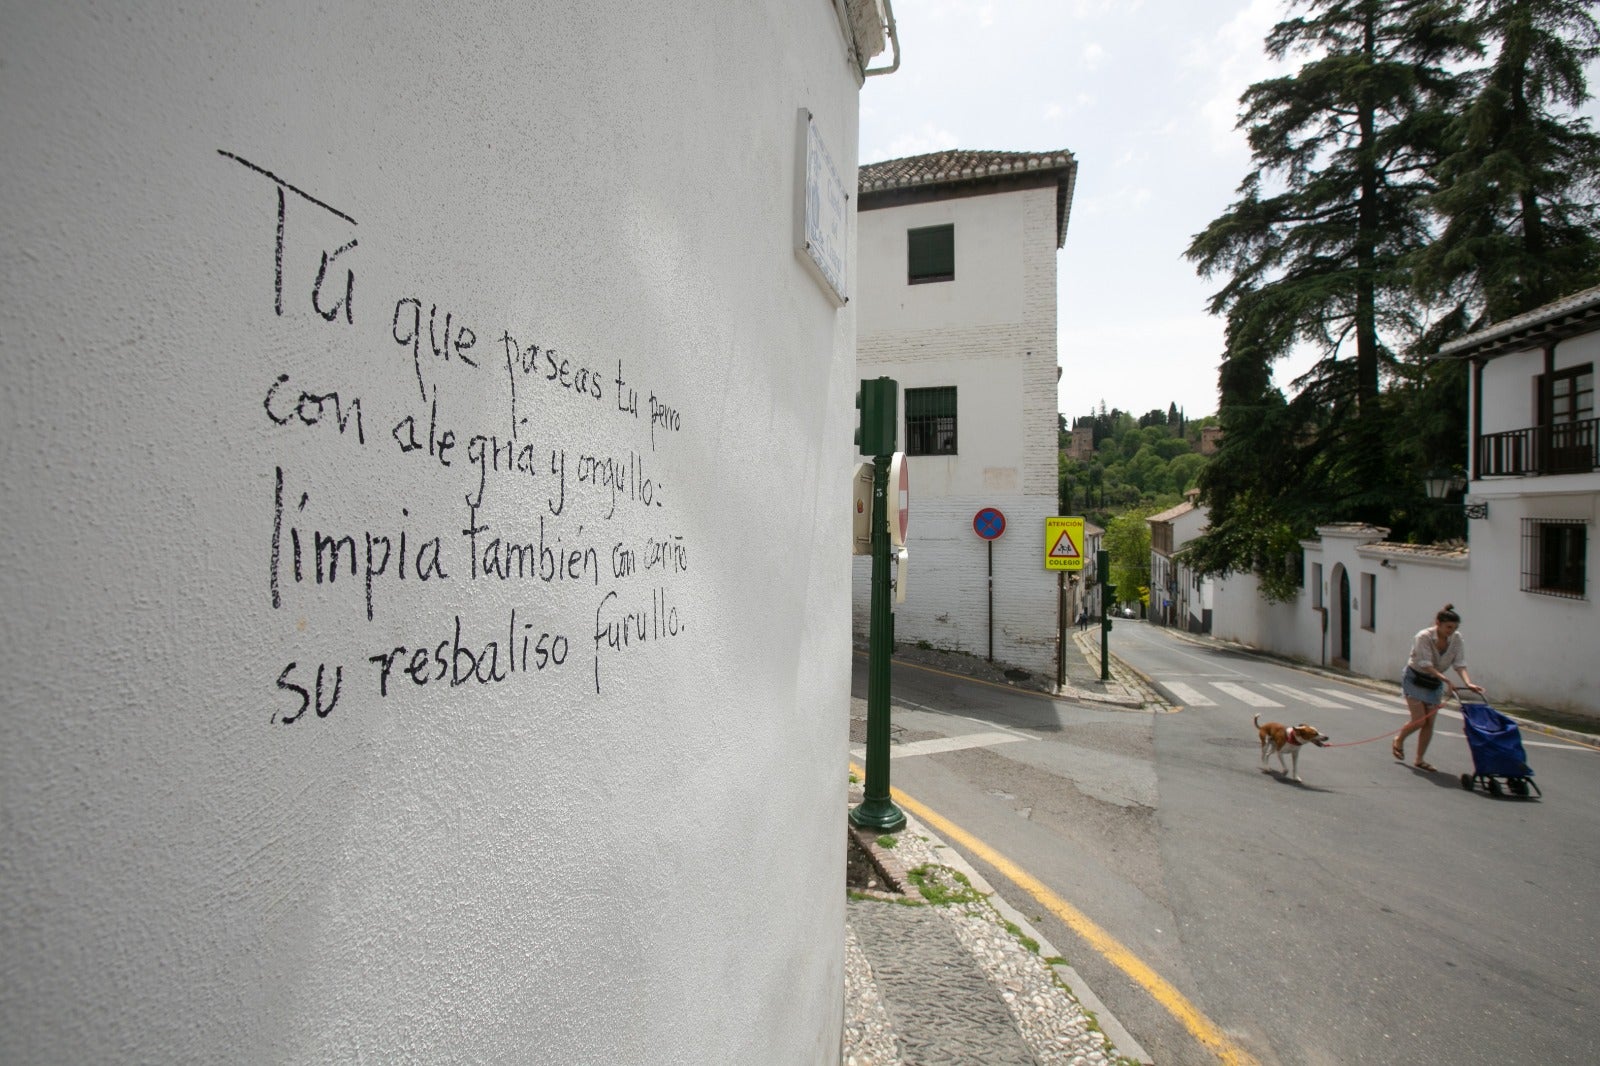 Tú que paseas tu perro
con alegría y orgullo:
límpia también con cariño
su resbaliso furullo.
ATENCIÓN
COLEGIO
5